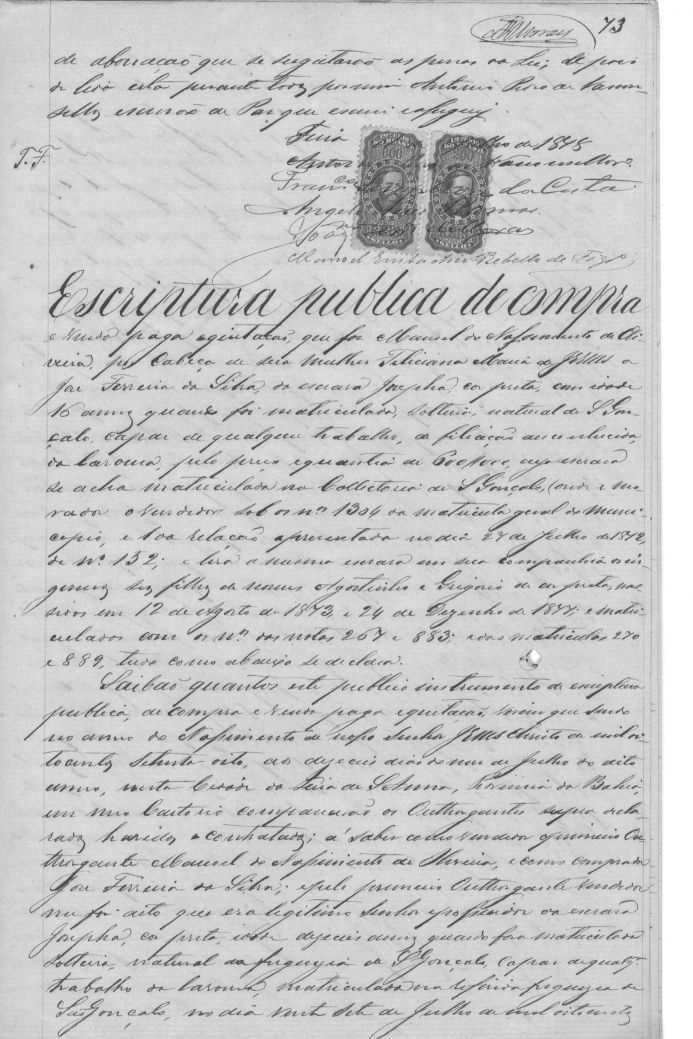 73
de que se sugeitarão as penas da Lei; depois
de lido esta perante todos por mim Antonio de Vascon-
sellos escrivão de Paz que escrevi
T. F.
Feira de 1878
Vasconsellos
Franco da Costa
Angelo
Manoel Rebello de
Escriptura publica de compra
e venda paga e quitação, que faz Manoel do Nascimento de Oli-
veira, por Cabeça de sua mulher Feliciana Maria de Jesus a
Jose Ferreira da Silva, da escrava Josepha, cor preta, com idade
16 annos quando foi matriculada, solteira, natural de S Gon-
çalo, capaz de qualquer trabalho, de filiação desconhecida,
da lavoura, pelo preço e quantia de cuja escrava
se acha matriculada na Collectoria de S Gonçalo, (onde é mo-
rador o vendedor sob os nos 1304 da matricula geral do muni-
cipio, e 1 da relação apresentada no dia 27 de Julho de 1872,
de no. 132; e leva a mesma escrava em sua companhia os in-
genuos seus filhos de nomes Agostinho e Grigorio de cor preta, nas-
cidos em 12 de Agosto de 1873, e 24 de Dezenbro de 1877; e matri-
culados com os nos. das notas 267 e 883; e das matriculas 270
e 889, tudo como abaixo se declara.
Saibão quantos este publico instrumento de escriptura
publica, de compra e venda paga e quitação, virem que sendo
no anno do Nascimento de nosso Senhor Jesus Christo de mil oi-
tocentos setenta oito, aos dezeceis dias do mez de Julho do dito
anno, nesta Cidade da Feira de S. Anna, Provincia da Bahia,
em meu Cartorio comparecerão os Outhorgantes supra decla-
rados havidos e contratados; a saber como vendedor o primeiro Ou-
thorgante Manoel do Nascimento de Oliveira, e como comprador
Jose Ferreira da Silva; e pelo primeiro Outhorgante vendedor
me foi dito que era legitimo Senhor e possuidor da escrava
Josepha, cor preta, idade dezeceis annos quando fora matriculada
solteira, natural da freguezia de S Gonçalo, capaz de qualqr.
trabalho da lavoura, matriculada na referida freguezia de
São Gonçalo, no dia vente sete de Julho de mil oitocentos